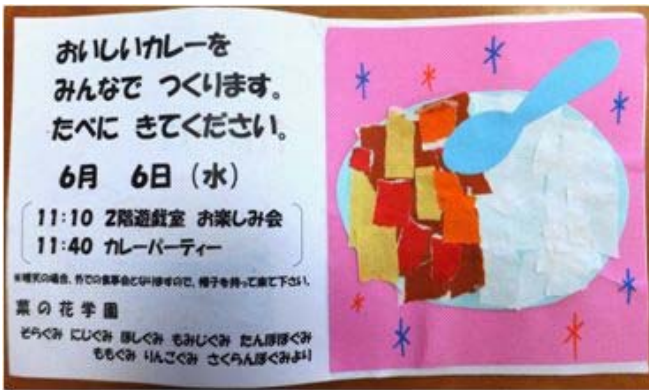 おいしいカレーを
みんなで つくります。
たべに きてください。
6月 6日 (水)
11:10 2階遊戯室 お楽しみ会
11:40 カレーパーティー
※晴天の場合、外での食事会となりますので、帽子を持って来て下さい。
菜の花学園
そらぐみ にじぐみ ほしぐみ もみじぐみ たんぽぽぐみ
ももぐみ りんごぐみ さくらんぼぐみより